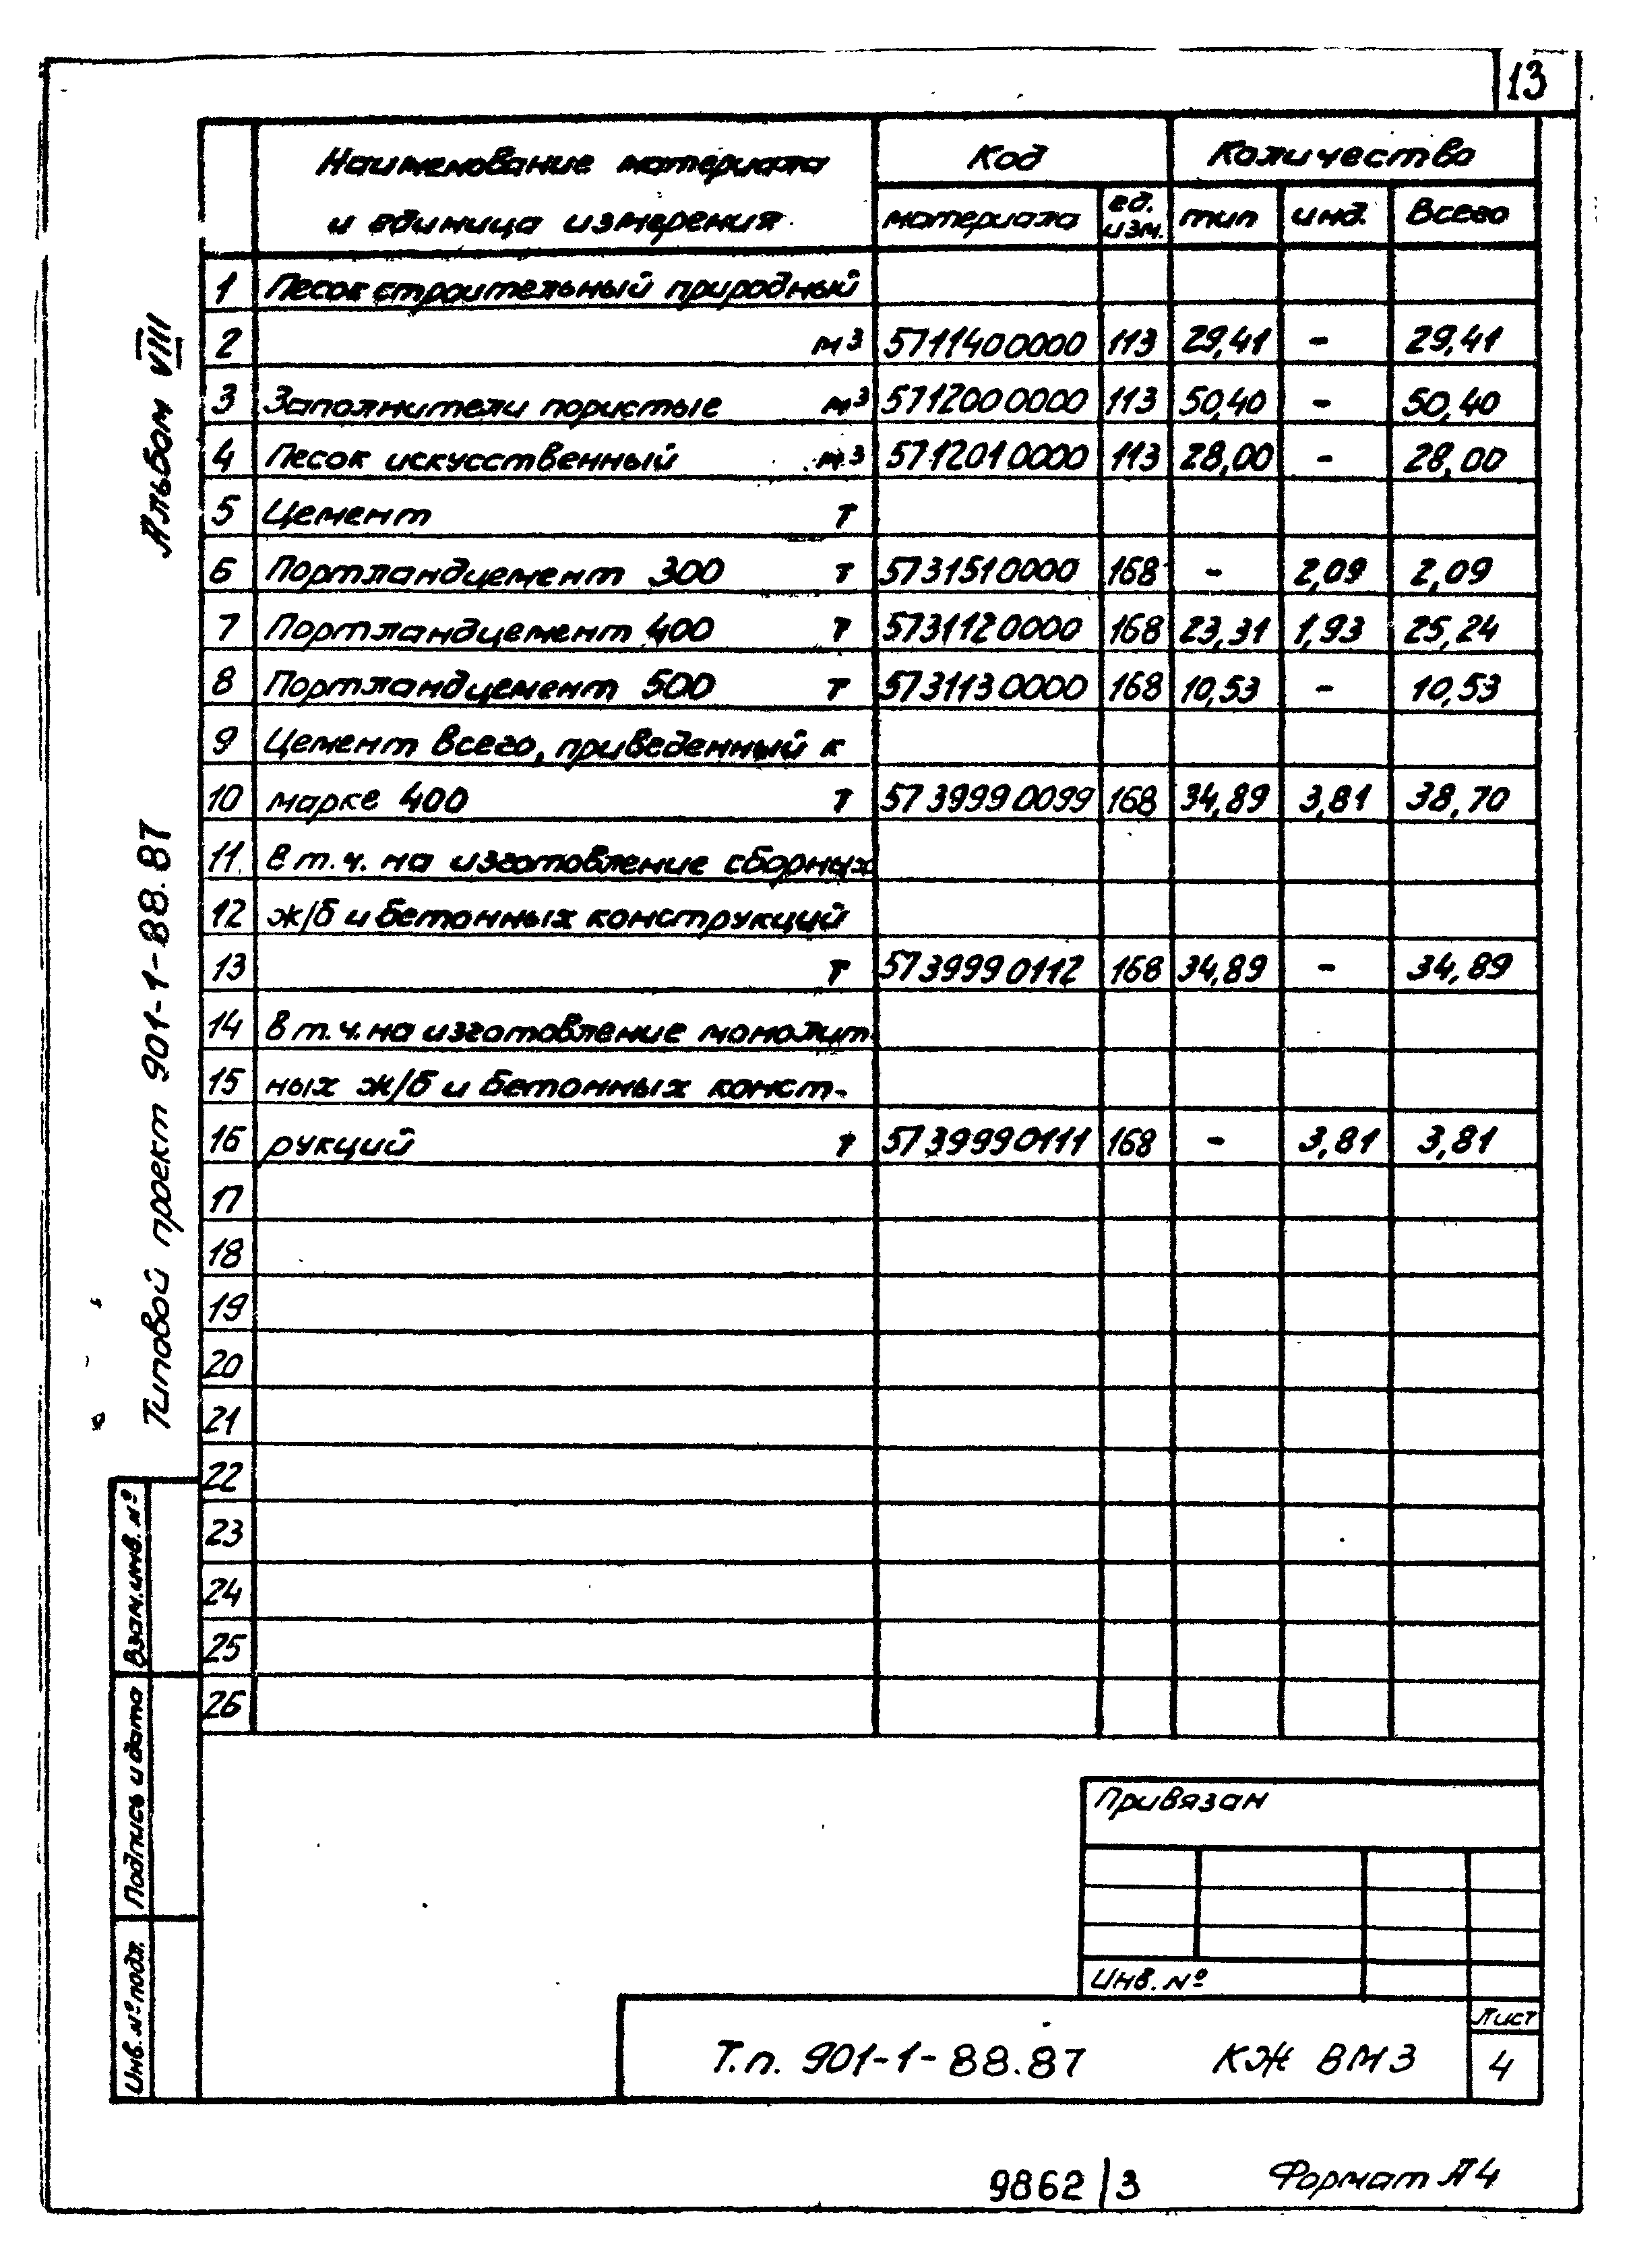 13
Наименование материала
и единица измерения
Код
Количество
материала
ед. изм.
тип
инд.
Всего
1 Песок строительный природный
2 м³ 5711400000 113 29,41 - 29,41
3 Заполнители пористые м³ 5712000000 113 50,40 - 50,40
4 Песок искусственный м³ 5712010000 113 28,00 - 28,00
5 Цемент т
6 Портландцемент 300 т 5731510000 168 - 2,09 2,09
7 Портландцемент 400 т 5731120000 168 23,31 1,93 25,24
8 Портландцемент 500 т 5731130000 168 10,53 - 10,53
9 Цемент всего, приведенный к
10 марке 400 т 5739990099 168 34,89 3,81 38,70
11 в т.ч. на изготовление сборных
12 ж/б и бетонных конструкций
13 т 5739990112 168 34,89 - 34,89
14 в т.ч. на изготовление монолит-
15 ных ж/б и бетонных конст-
16 рукций т 5739990111 168 - 3,81 3,81
17
18
19
20
21
22
23
24
25
26
Альбом VIII
Типовой проект 901-1-88.87
Взам.инв. №
Подпись и дата
Инв. № подл.
Привязан
Инв. №
Т.п. 901-1-88.87 КЖ ВМ3
Лист
4
9862/3
Формат А4